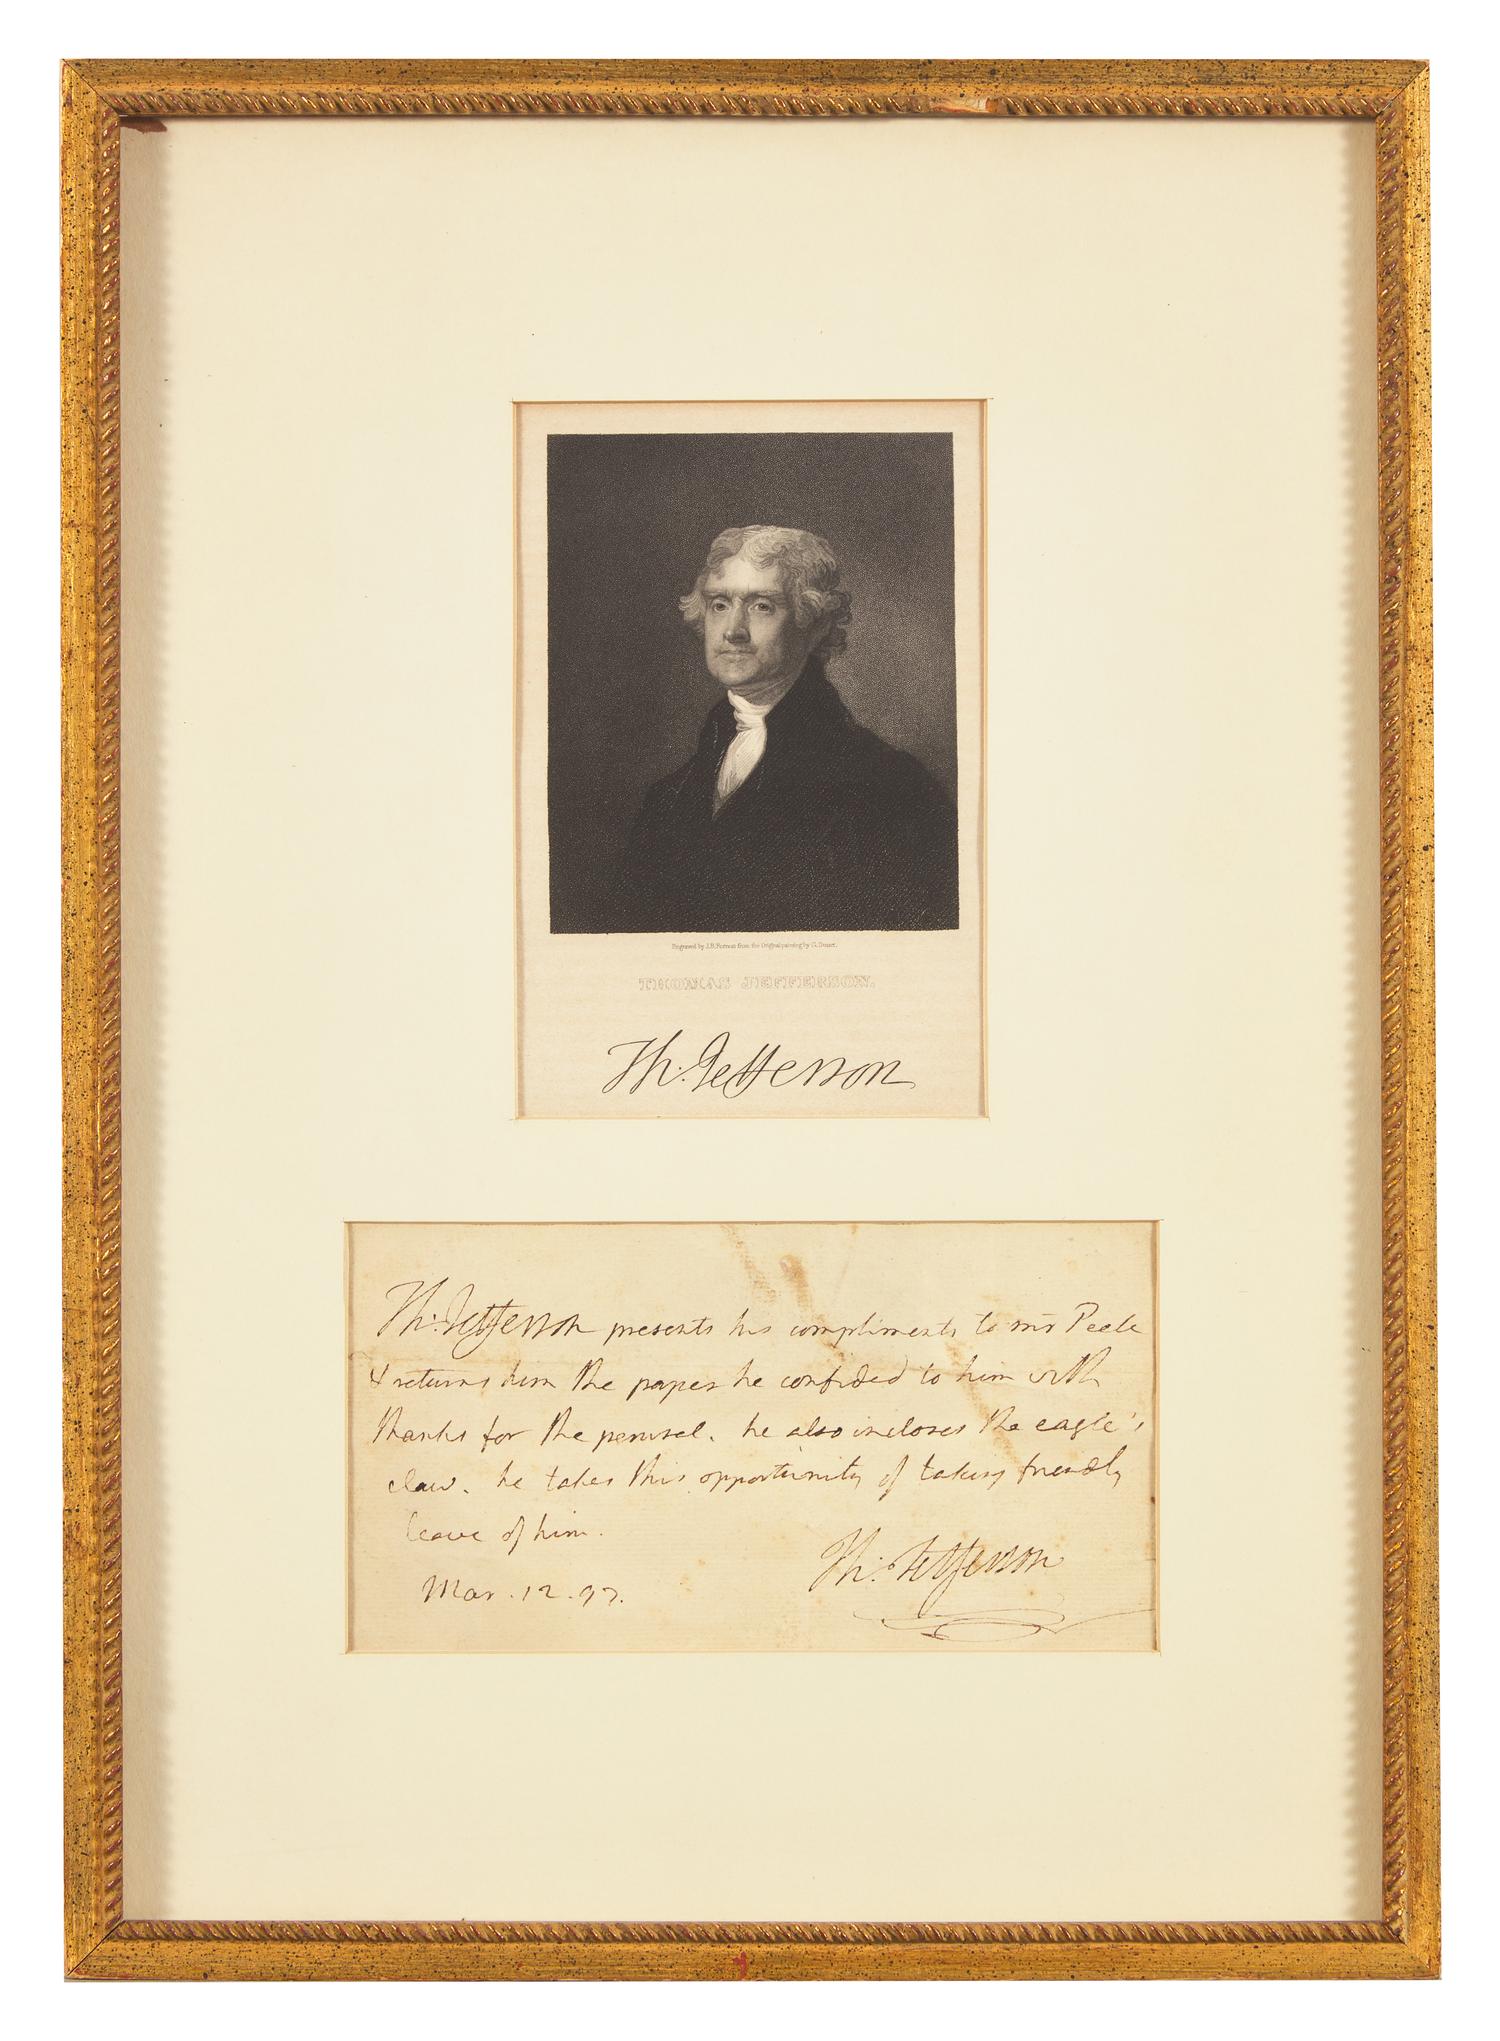 Engraved by J.B. Forrest from the Original painting by G. Stuart.
THOMAS JEFFERSON.
Th: Jefferson
Th: Jefferson presents his compliments to mr Peale
& returns him the paper he confided to him with
thanks for the perusal. he also incloses the eagle's
claw. he takes this opportunity of taking friendly
leave of him.
Th: Jefferson
Mar. 12. 97.